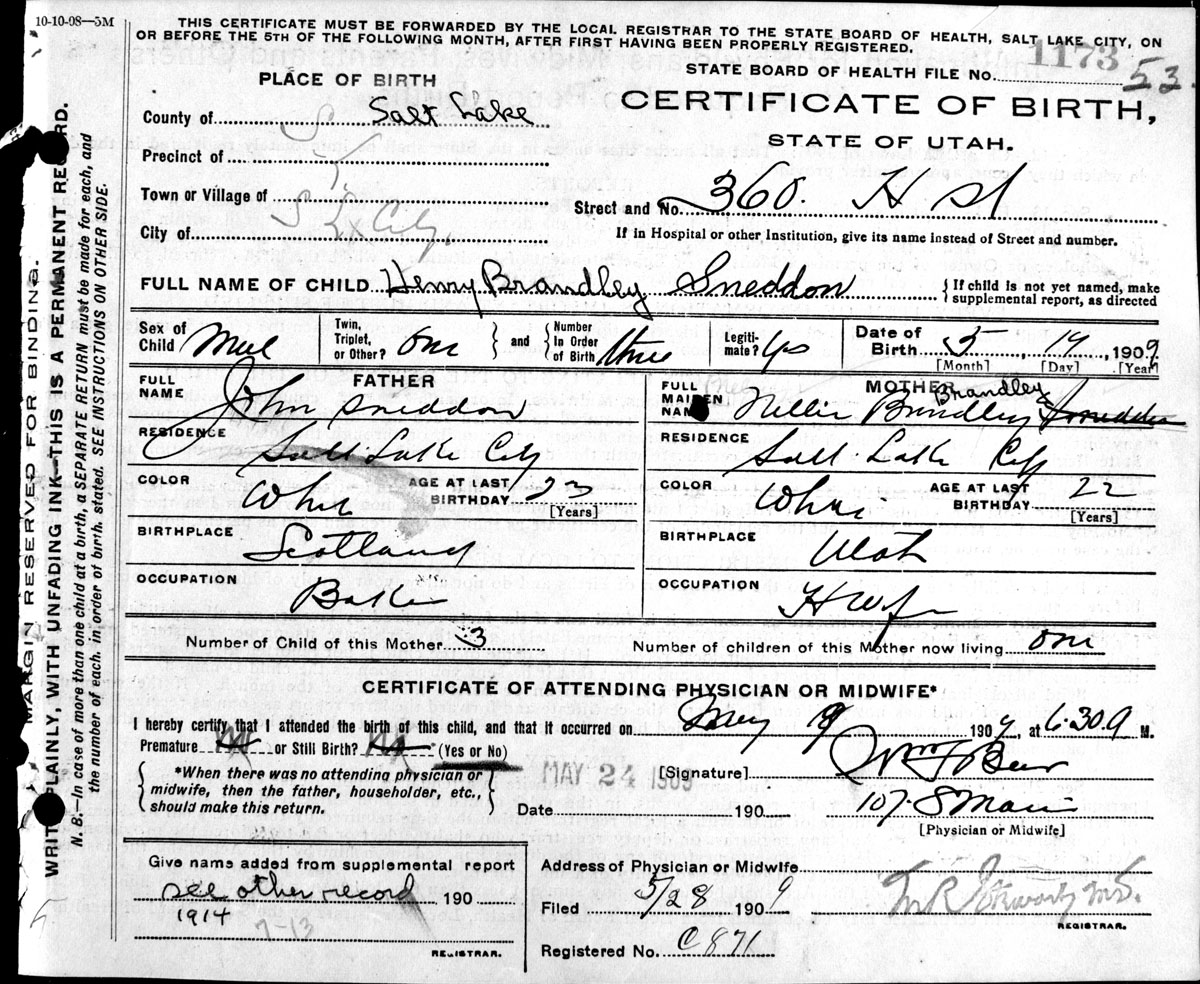 10-10-08—5M
THIS CERTIFICATE MUST BE FORWARDED BY THE LOCAL REGISTRAR TO THE STATE BOARD OF HEALTH, SALT LAKE CITY, ON
OR BEFORE THE 5TH OF THE FOLLOWING MONTH, AFTER FIRST HAVING BEEN PROPERLY REGISTERED.
1173
53
STATE BOARD OF HEALTH FILE No.
PLACE OF BIRTH
CERTIFICATE OF BIRTH,
STATE OF UTAH.
County of Salt Lake
Precinct of
Town or Village of
City of S Lk City
Street and No. 360. H St
If in Hospital or other Institution, give its name instead of Street and number.
FULL NAME OF CHILD Henry Brandley Sneddon
{ If child is not yet named, make
supplemental report, as directed
Sex of Child Male
Twin, Triplet, or Other? One
and
Number In Order of Birth three
Legitimate? Yes
Date of Birth 5, 19, 1909
[Month] [Day] [Year]
FATHER
FULL NAME John Sneddon
RESIDENCE Salt Lake City
COLOR White
AGE AT LAST BIRTHDAY 23
[Years]
BIRTHPLACE Scotland
OCCUPATION Baker
MOTHER
FULL MAIDEN NAME Nellie Brandley Brandley Sneddon
RESIDENCE Salt Lake City
COLOR White
AGE AT LAST BIRTHDAY 22
[Years]
BIRTHPLACE Utah
OCCUPATION H Wife
Number of Child of this Mother 3
Number of children of this Mother now living one
CERTIFICATE OF ATTENDING PHYSICIAN OR MIDWIFE*
I hereby certify that I attended the birth of this child, and that it occurred on May 19 1909, at 6.30 a M.
Premature No or Still Birth? No (Yes or No)
*When there was no attending physician or
midwife, then the father, householder, etc.,
should make this return.
MAY 24 1909
[Signature] Wm F Beer
Date 190
107. S Main
[Physician or Midwife]
Give name added from supplemental report
see other record 190
1914
7-13
REGISTRAR.
Address of Physician or Midwife
Filed 5/28 1909
REGISTRAR.
Registered No. C871
MARGIN RESERVED FOR BINDING.
WRITE PLAINLY, WITH UNFADING INK—THIS IS A PERMANENT RECORD.
N. B.—In case of more than one child at a birth, a SEPARATE RETURN must be made for each, and
the number of each, in order of birth, stated. SEE INSTRUCTIONS ON OTHER SIDE.